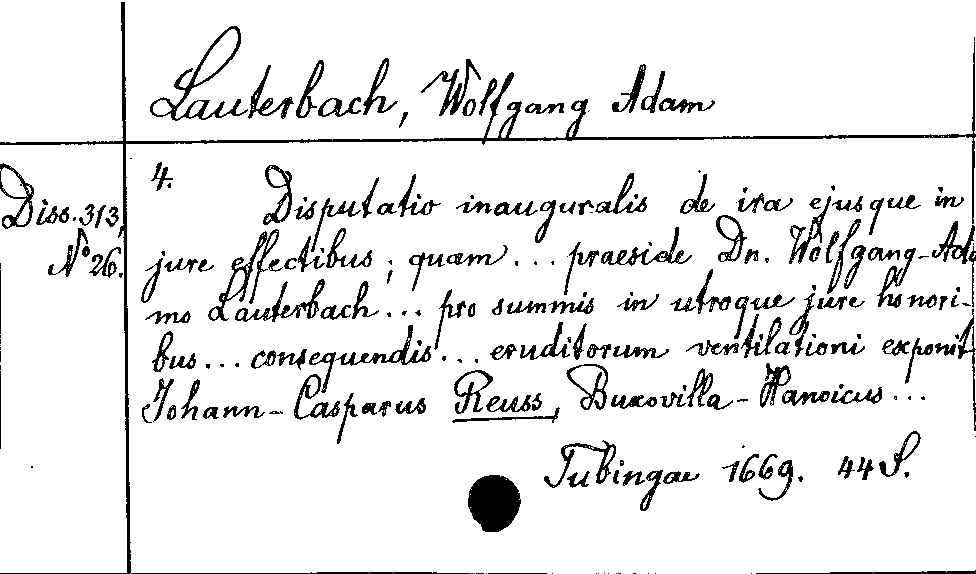 Lauterbach, Wolfgang Adam
4.
Diss. 313,
N° 26.
Disputatio inauguralis de ira ejusque in
jure effectibus; quam ... praeside Dn. Wolfgang-Ada
mo Lauterbach ... pro summis in utroque jure honori-
bus ... consequendis ... eruditorum ventilationi exponit
Johann-Casparus Reuss, Buxovilla-Hanoicus ...
Tubingae 1669. 44 S.